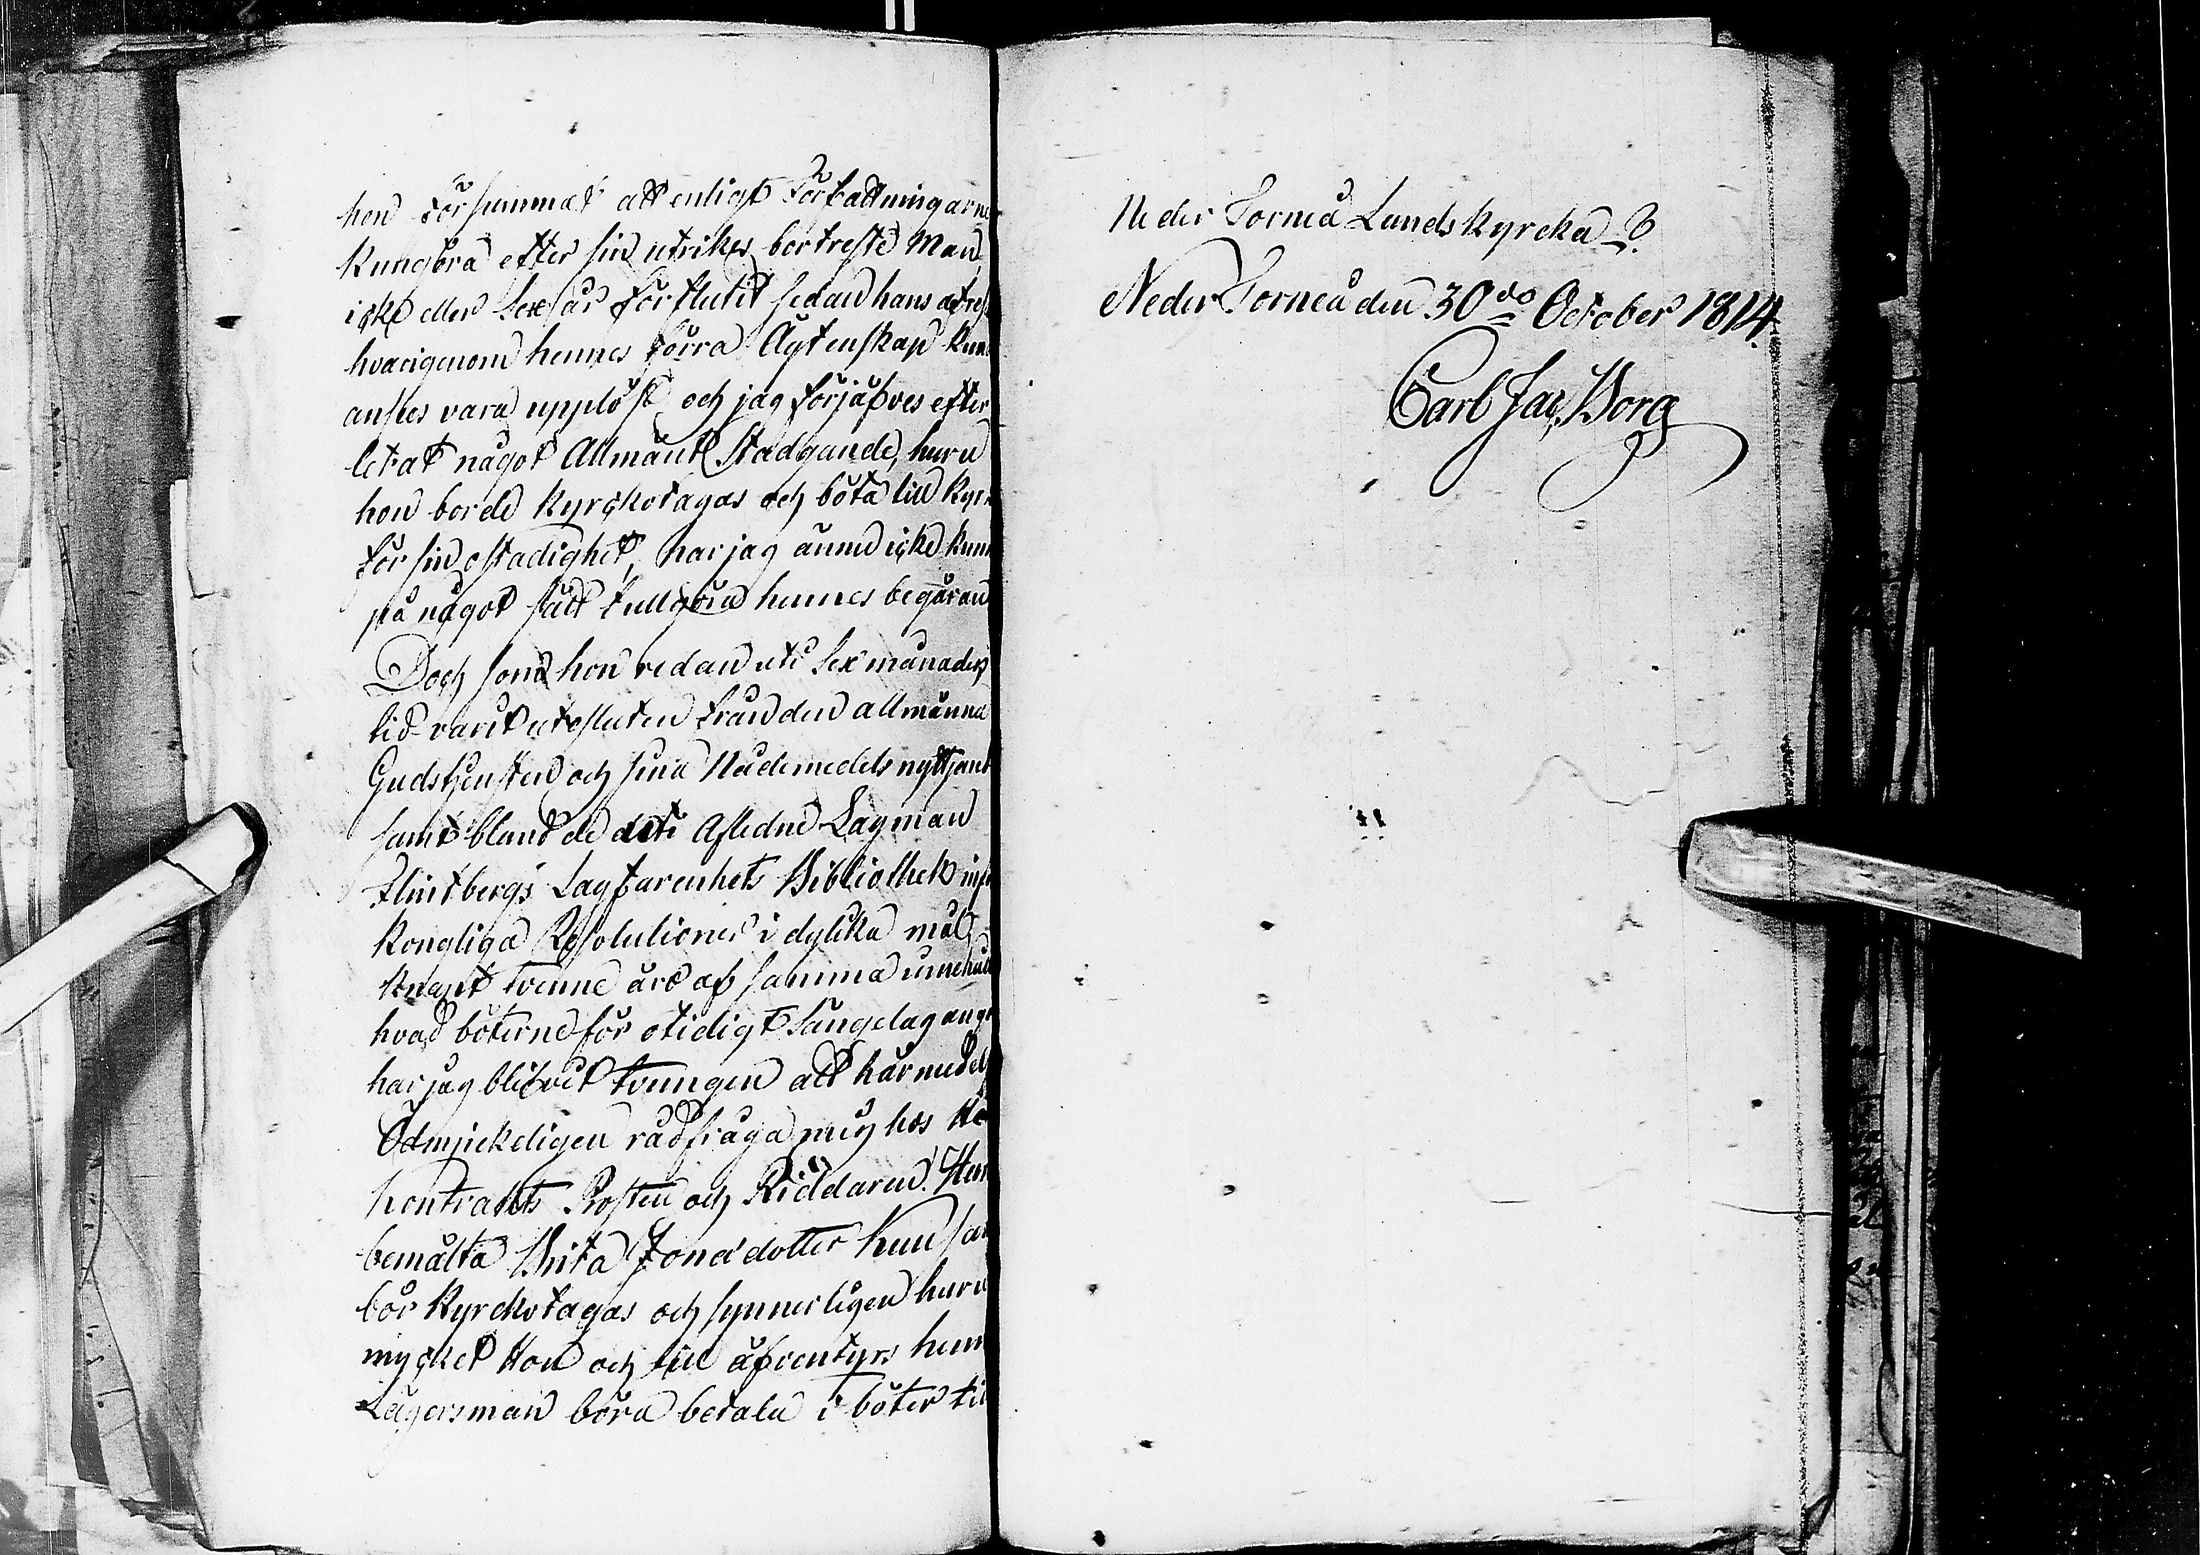 hon försummat att enligt Författningarne
kungöra efter sin utrikes bortreste Man,
icke eller Sex år förflutit sedan hans afresa
hvarigenom hennes förra Ägtenskap kun
anses vara upplöst, och jag förjäfves efter-
letat något Allmänt Stadgande, huru
hon borde kyrckotagas och böta till kyr
för sin ostadighet, har jag ännu icke kun
på något sätt fullgöra hennes begäran
Doch som hon redan uti Sex månaders
tid varit utesluten från den allmänna
Gudstjensten och sina Nådemedels nyttjan
samt bland de uti Afledne Lagman
Flintbergs Lagfarenhets Bibliothek inf
Kongliga Resolutioner i dylika mål,
knapt tvenne äro af samma innehåll
hvad böterne för otidigt Sängelag ang
har jag blifvit tvungen att härmedelst
Ödmjukeligen rådfråga mig hos He
Kontracts Prosten och Riddaren! Huru
bemälta Brita Jonædotter kun
bör kyrckotagas och synnerligen huru
mycket Hon och till äfventyrs henn
Lägersman böra betala i böter til
Neder Torneå Landskyrcka
Neder Torneå den 30do October 1814.
Carl Jac. Borg